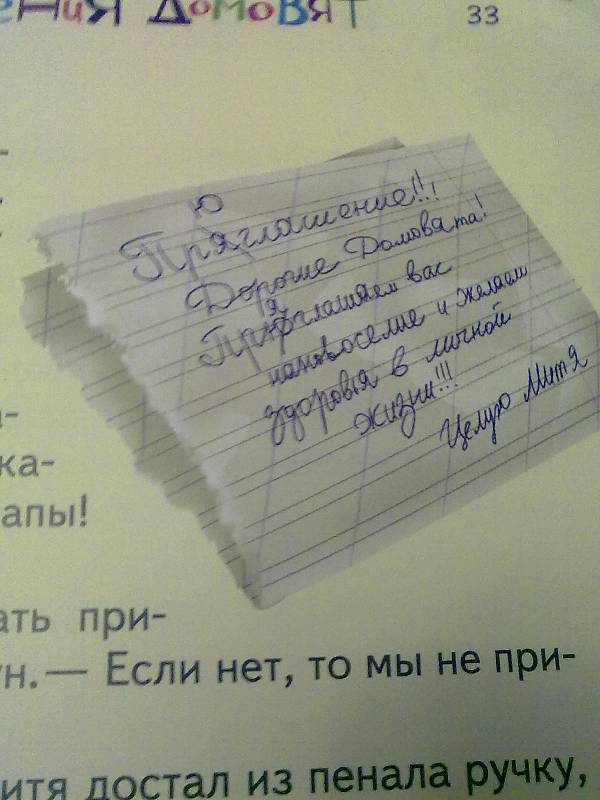 ения Домовят
33
-
ю
Пряглашение!!!
Дорогие Домовята!
я
Приглашяем вас
нановоселие и желаем
здоровья в личной
жизни!!!
Целую Митя
а-
ка-
апы!
ать при-
ун.— Если нет, то мы не при-
итя достал из пенала ручку,